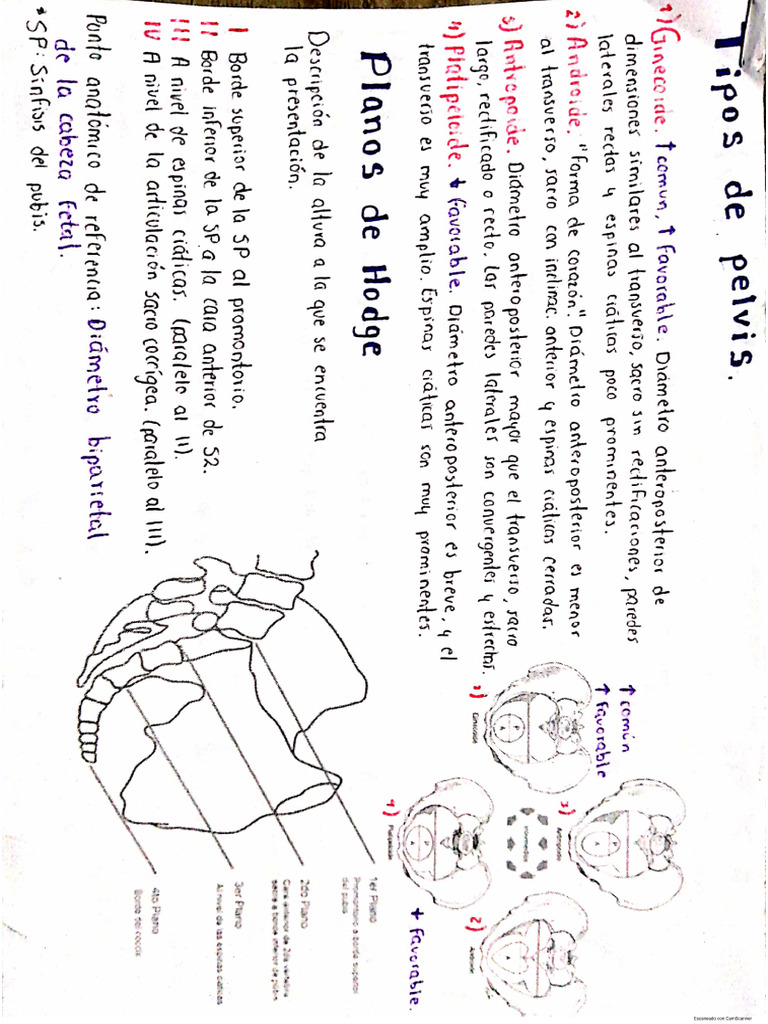 Tipos de pelvis.
1) Ginecoide. ↑ común, ↑ favorable. Diámetro anteroposterior de
dimensiones similares al transverso, sacro sin rectificaciones, paredes
laterales rectas y espinas ciáticas poco prominentes.
2) Androide. "Forma de corazón." Diámetro anteroposterior es menor
al transverso, sacro con inclinac. anterior y espinas ciáticas cerradas.
3) Antropoide. Diámetro anteroposterior mayor que el transverso, sacro
largo, rectificado o recto. Las paredes laterales son convergentes y estrechas.
4) Platipeloide. ↓ favorable. Diámetro anteroposterior es breve, y el
transverso es muy amplio. Espinas ciáticas son muy prominentes.
↑ común
↑ favorable
1)
Ginecoide
3)
Antropoide
Intermedios
2)
Androide
4)
↓ favorable.
Planos de Hodge
Descripción de la altura a la que se encuentra
la presentación.
I Borde superior de la SP al promontorio.
II Borde inferior de la SP a la cara anterior de S2.
III A nivel de espinas ciáticas. (paralelo al II).
IV A nivel de la articulación sacro coccígea. (paralelo al III).
Punto anatómico de referencia: Diámetro biparietal
de la cabeza fetal.
* SP: Sínfisis del pubis.
1er Plano
Promontorio a borde superior
del pubis
2do Plano
Cara anterior de 2da vertebra
sacra a borde inferior de pubis
3er Plano
Al nivel de las espinas ciáticas
4to Plano
Borde del coccix
Escaneado con CamScanner